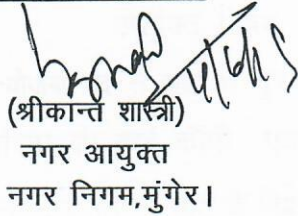 (श्रीकान्त शास्त्री)
नगर आयुक्त
नगर निगम,मुंगेर।